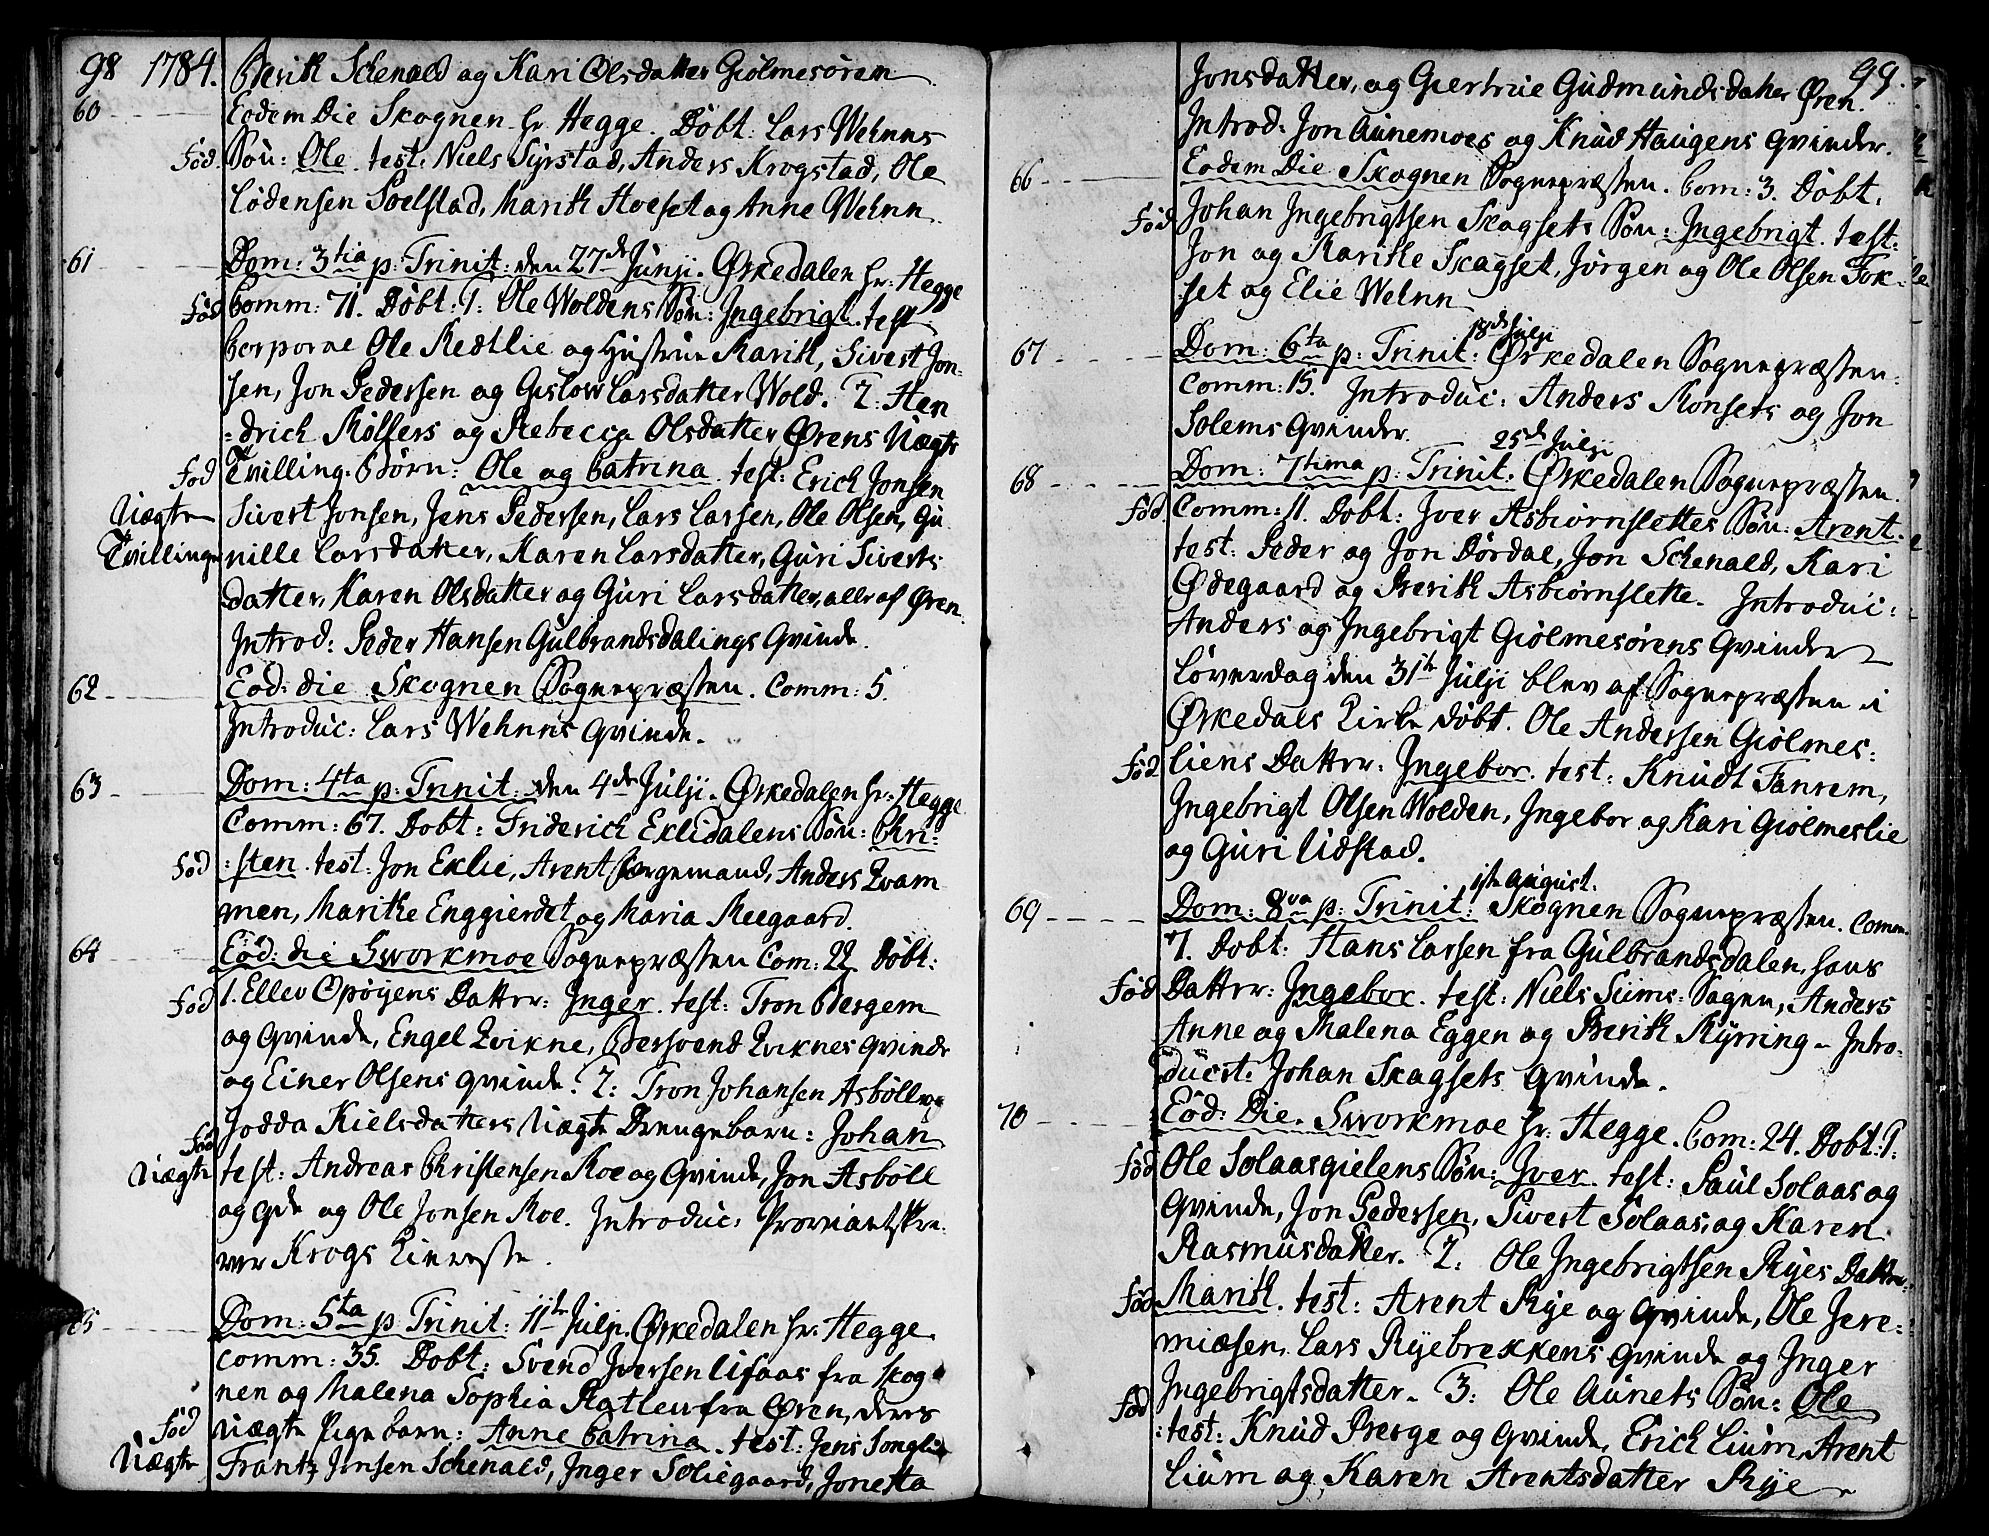 98 1784. Berith Schenald og Kari Olsdatter Giølmesøren
60 Eodem Die Skognen hr. Hegge. Døbt: Lars Wehnns
Fød Søn: Ole. test: Niels Syrstad, Anders Krogstad, Ole
Lødensen Soelstad, Marith Hoeset og Anne Wehnn.
61 Dom: 3tia p: Trinit: den 27de Junji. Ørkedalen hr: Hegge
Fød Comm: 71. Døbt: 1: Ole Woldens Søn: Ingebrigt. test
Corporae Ole Rædllie og Hustrue Marith, Sivert Jon-
sen, Jon Pedersen og Gislow Larsdatter Wold. 2: Hen
drich Rølfers og Rebecca Olsdatter Ørens Uægte
Fød Tvilling-Børn: Ole og Catrina. test: Erich Jonsen
Uægte Sivert Jonsen, Jens Pedersen, Lars Larsen, Ole Olsen, Gu
Tvillinge nille Larsdatter, Karen Larsdatter, Guri Siverts
datter, Karen Olsdatter og Guri Larsdatter, alle af Øren.
Introd: Peder Hansen Gulbrandsdalings Qvinde.
62 Eod: die Skognen Sognepræsten. Comm: 5.
Introduc: Lars Wehnns Qvinde.
63 Dom: 4ta p: Trinit: den 4de Julji. Ørkedalen hr: Hegge
Comm: 67. Døbt: Friderich Eklidalens Søn: Chri-
Fød sten. test: Jon Eklie, Arent Borgemand, Anders Qvam
men, Marithe Enggierdet og Maria Meegaard.
64 Eod: die Sworkmoe Sognepræsten Com: 22 Døbt:
Fød 1. Ellev Opøyens Datter: Inger. test: Tron Bergem
og Qvinde, Engel Qvikne, Bersvend Qviknes Qvinde
og Einer Olsens Qvinde. 2: Tron Johansen Asbølls og
Jodda Kielsdatters Uægte Drengebarn: Johan
Fød
Uægte test: Andreas Christensen Roe og Qvinde, Jon Asbøll
og Qde og Ole Jonsen Roe. Introduc: Proviantskri-
ver Krogs Kiereste.
65 Dom: 5ta p: Trinit: 11te Julji. Ørkedalen hr: Hegge
Comm: 35. Døbt: Svend Iversen Lifaas fra Skog
nen og Malena Sophia Ratlew fra Øren, deres
Fød Uægte Pigebarn: Anne Catrina. test: Jens Songlie
Uægte Frantz Jensen Schenald, Inger Soliegaard, Jonetta
99.
Jonsdatter, og Giertrue Gudmundsdatter Øren.
Introd: Jon Aunemoes og Knud Haugens Qvinder.
66 Eodem Die Skognen Sognepræsten. Com: 3. Døbt.
Fød Johan Ingebrigtsen Skagsets Søn: Ingebrigt. test:
Jon og Marithe Skagset, Jørgen og Ole Olsen Fok-
set og Elie Wehnn
67 Dom: 6ta p: Trinit: 18de Julji Ørkedalen Sognepræsten.
Comm: 15. Introduc: Anders Monsets og Jon
Solems Qvinder.
68 Dom: 7tima p: Trinit. 25de Julji Ørkedalen Sognepræsten.
Fød Comm: 11. Døbt: Iver Asbiørnslettes Søn: Arent.
test: Peder og Jon Dørdal, Jon Schenald, Kari
Ødegaard og Berith Asbiørnslette. Introduc:
Anders og Ingebrigt Giølmesørens Qvinder
Løverdag den 31te Julji blev af Sognepræsten i
Ørkedals Kirke døbt. Ole Andersen Giølmes-
Fød liens Datter: Ingebor. test: Knudt Fanrem,
Ingebrigt Olsen Wolden, Ingebor og Kari Giølmeslie
og Guri Uldstad.
69 Dom: 8va p: Trinit: 1ste August. Skognen Sognepræsten. Comm:
7. Døbt: Hans Larsen fra Gulbrandsdalen, hans
Fød Datter: Ingebor. test: Niels Siims-Hagen, Anders
Anne og Malena Eggen og Berith Ryrring. Intro-
ducst: Johan Skagsets Qvinde.
70 Eod: Die. Sworkmoe hr: Hegge. Com: 24. Døbt: 1:
Fød Ole Solaasgielens Søn: Iver. test: Paul Solaas og
Qvinde, Jon Pedersen, Sivert Solaas, og Karen
Rasmusdatter. 2: Ole Ingebrigtsen Ryes Datter:
Fød Marith. test: Arent Rye og Qvinde, Ole Jere-
miæsen, Lars Ryebrekkens Qvinde og Inger
Ingebrigtsdatter. 3: Ole Aunets Søn: Ole
Fød test: Knud Berge og Qvinde, Erich Lium, Arent
Lium og Karen Arentsdatter Rye